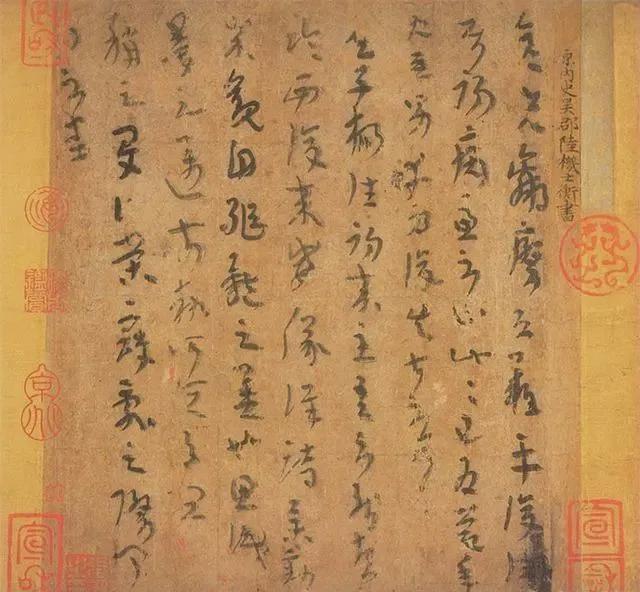 原內史吳郡陸機士衡書
彥先羸瘵恐難平復往屬
初病慮不止此此已為慶承
使唯男幸為復失前憂耳
吳子楊往初來主吾不能盡
臨西復來威儀詳跱舉動
成觀自軀體之美也思識
量之邁前勢所恒有宜
稱之夏伯榮寇亂之際聞
問不悉
宣和
宣和